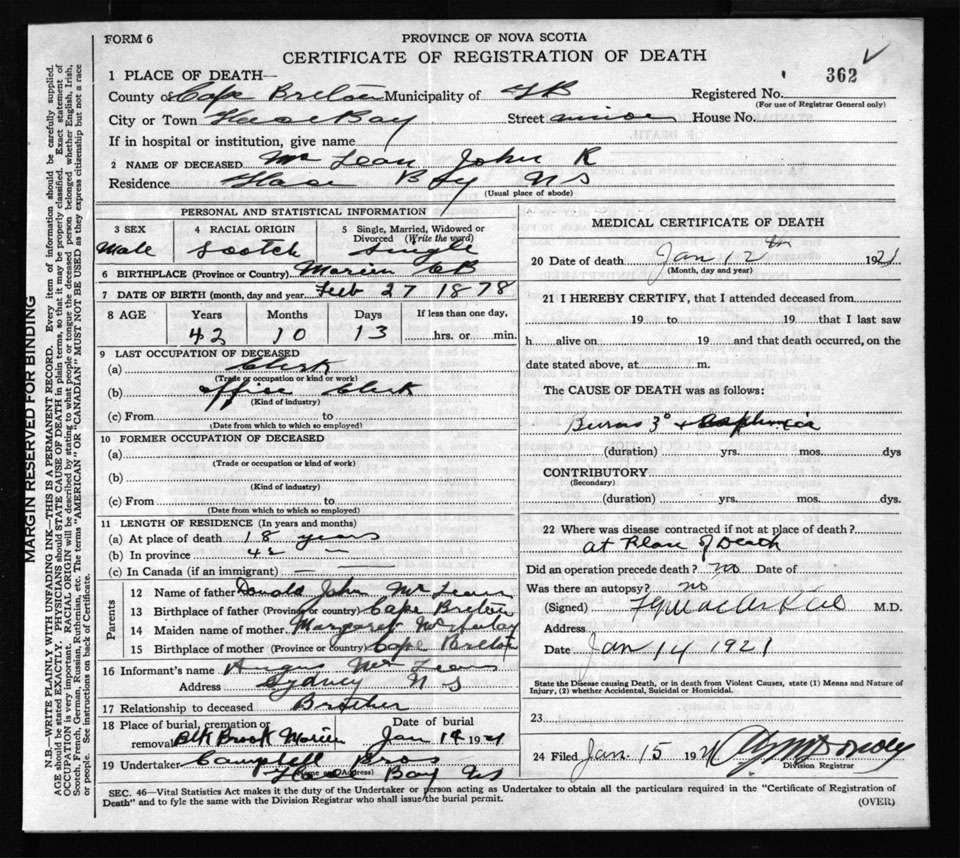 FORM 6
PROVINCE OF NOVA SCOTIA
CERTIFICATE OF REGISTRATION OF DEATH
362
1 PLACE OF DEATH—
County of Cape Breton Municipality of GB Registered No.
(For use of Registrar General only)
City or Town Glace Bay Street House No.
If in hospital or institution, give name
2 NAME OF DECEASED Mc Lean John R
Residence Glace Bay NS
(Usual place of abode)
PERSONAL AND STATISTICAL INFORMATION
3 SEX 4 RACIAL ORIGIN 5 Single, Married, Widowed or Divorced (Write the word)
Male Scotch Single
6 BIRTHPLACE (Province or Country) Marion CB
7 DATE OF BIRTH (month, day and year) Feb 27 1878
8 AGE Years Months Days If less than one day,
42 10 13 hrs. or min.
9 LAST OCCUPATION OF DECEASED
(a) Clerk
(Trade or occupation or kind or work)
(b) office Clerk
(Kind of industry)
(c) From to
(Date from which to which so employed)
10 FORMER OCCUPATION OF DECEASED
(a)
(Trade or occupation or kind of work)
(b)
(Kind of industry)
(c) From to
(Date from which to which so employed)
11 LENGTH OF RESIDENCE (In years and months)
(a) At place of death 18 years
(b) In province 42 —
(c) In Canada (if an immigrant) — —
Parents
12 Name of father Donald John Mc Lean
13 Birthplace of father (Province or country) Cape Breton
14 Maiden name of mother Margaret
15 Birthplace of mother (Province or country) Cape Breton
16 Informant's name Angus Mc Lean
Address Sydney N S
17 Relationship to deceased Brother
18 Place of burial, cremation or removal Blk Brook Marion
Date of burial Jan 14 1921
19 Undertaker Campbell Bros
(Name and Address) Glace Bay NS
MEDICAL CERTIFICATE OF DEATH
20 Date of death Jan 12th 1921
(Month, day and year)
21 I HEREBY CERTIFY, that I attended deceased from
19 to 19 that I last saw
h alive on 19 and that death occurred, on the
date stated above, at m.
The CAUSE OF DEATH was as follows:
Burns 3° + asphyxia
(duration) yrs. mos. dys
CONTRIBUTORY
(Secondary)
(duration) yrs. mos. dys.
22 Where was disease contracted if not at place of death?
at Place of Death
Did an operation precede death? no Date of
Was there an autopsy? no
(Signed) M.D.
Address
Date Jan 14 1921
State the Disease causing Death, or in death from Violent Causes, state (1) Means and Nature of
Injury, (2) whether Accidental, Suicidal or Homicidal.
23
24 Filed Jan 15 1921
Division Registrar
SEC. 46—Vital Statistics Act makes it the duty of the Undertaker or person acting as Undertaker to obtain all the particulars required in the "Certificate of Registration of
Death" and to fyle the same with the Division Registrar who shall issue the burial permit.
(OVER)
MARGIN RESERVED FOR BINDING
N.B.—WRITE PLAINLY WITH UNFADING INK—THIS IS A PERMANENT RECORD. Every item of information should be carefully supplied.
AGE should be stated EXACTLY. PHYSICIANS should STATE CAUSE OF DEATH in plain terms, so that it may be properly classified. Exact statement of
OCCUPATION is very important. RACIAL ORIGIN will be described by stating to what people or tongue the deceased person belonged whether English, Irish,
Scotch, French, German, Russian, Ruthenian, etc. The terms "AMERICAN" OR "CANADIAN" MUST NOT BE USED as they express citizenship but not a race
or people. See instructions on back of Certificate.